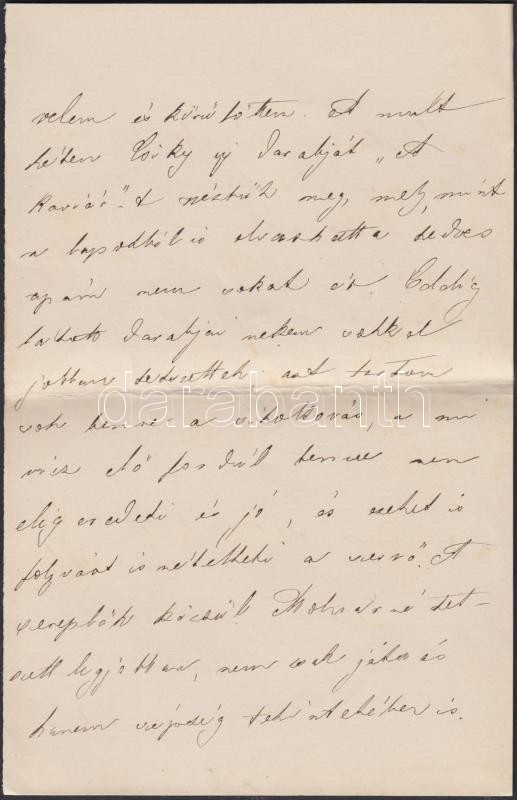 velem és körülöttem. A mult
héten Csiky uj darabját „A
kaviár”-t néztük meg, mely, mint
a lapokból is olvashatta kedves
apám nem sokat ér. Eddig
látott darabjai nekem sokkal
jobban tetszettek, azt tartom
sok benne a
vicz elő fordul benne nem
elég eredeti és jó, és ezeket is
folyvást ismételteti a szerző. A
szereplők közül Molnárné tet-
szett legjobban, nem csak játszás
hanem szépség tekintetében is.
darabanth.com